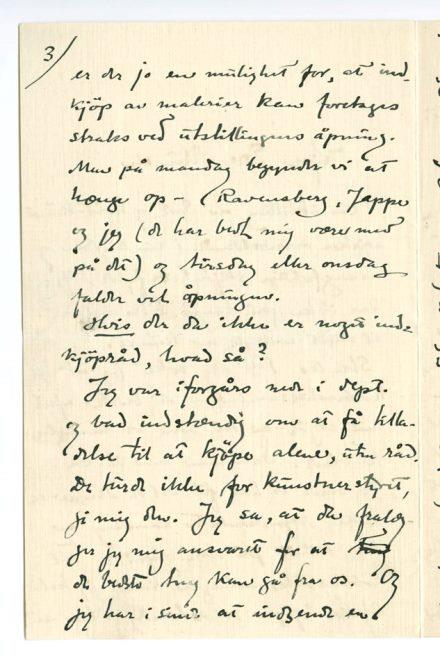 3/
er der jo en mulighet for, at ind-
kjöp av malerier kan foretages
straks ved utstillingens åpning.
Men på mandag begynder vi at
hænge op – (Ravensberg, Jappe
og jeg (de har bedt mig være med
på det) og tirsdag eller onsdag
falder vel åpningen.
Hvis der da ikke er noget ind-
kjöpsråd, hvad så?
Jeg var iforgårs nede i dept.
og bad indstændig om at få tilla-
delse til at kjöpe alene, uten råd.
De turde ikke for kunstnerstyret,
gi mig den. Jeg sa, at da fralæg-
ger jeg mig ansvaret for at
de bedste ting kan gå fra os. Og
jeg har i sinde at indsende en